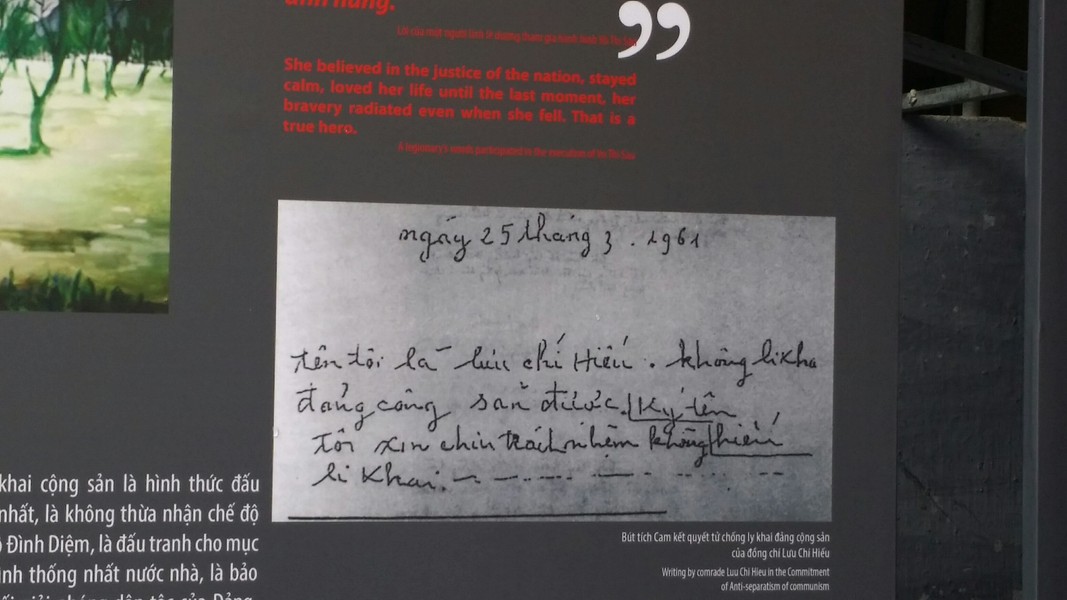 anh hùng.
”
Lời của một người lính lê dương tham gia hành hình Võ Thị Sáu
She believed in the justice of the nation, stayed
calm, loved her life until the last moment, her
bravery radiated even when she fell. That is a
true hero.
A legionary's words participated in the execution of Vo Thi Sau
ngày 25 tháng 3. 1961
tên tôi là lưu chí Hiếu. không li kha
đảng công sản được. Ký tên
tôi xin chiu trách nhiệm không hiếu
li khai.
khai cộng sản là hình thức đấu
nhất, là không thừa nhận chế độ
Đình Diệm, là đấu tranh cho mục
thống nhất nước nhà, là bảo
giải phóng dân tộc của Đảng,
Bút tích Cam kết quyết tử chống ly khai đảng cộng sản
của đồng chí Lưu Chí Hiếu
Writing by comrade Luu Chi Hieu in the Commitment
of Anti-separatism of communism